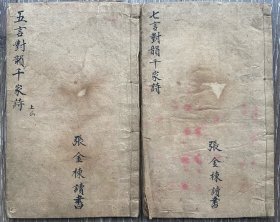 七言對韻千家詩
張金棟讀書
五言對韻千家詩
上
張金棟讀書